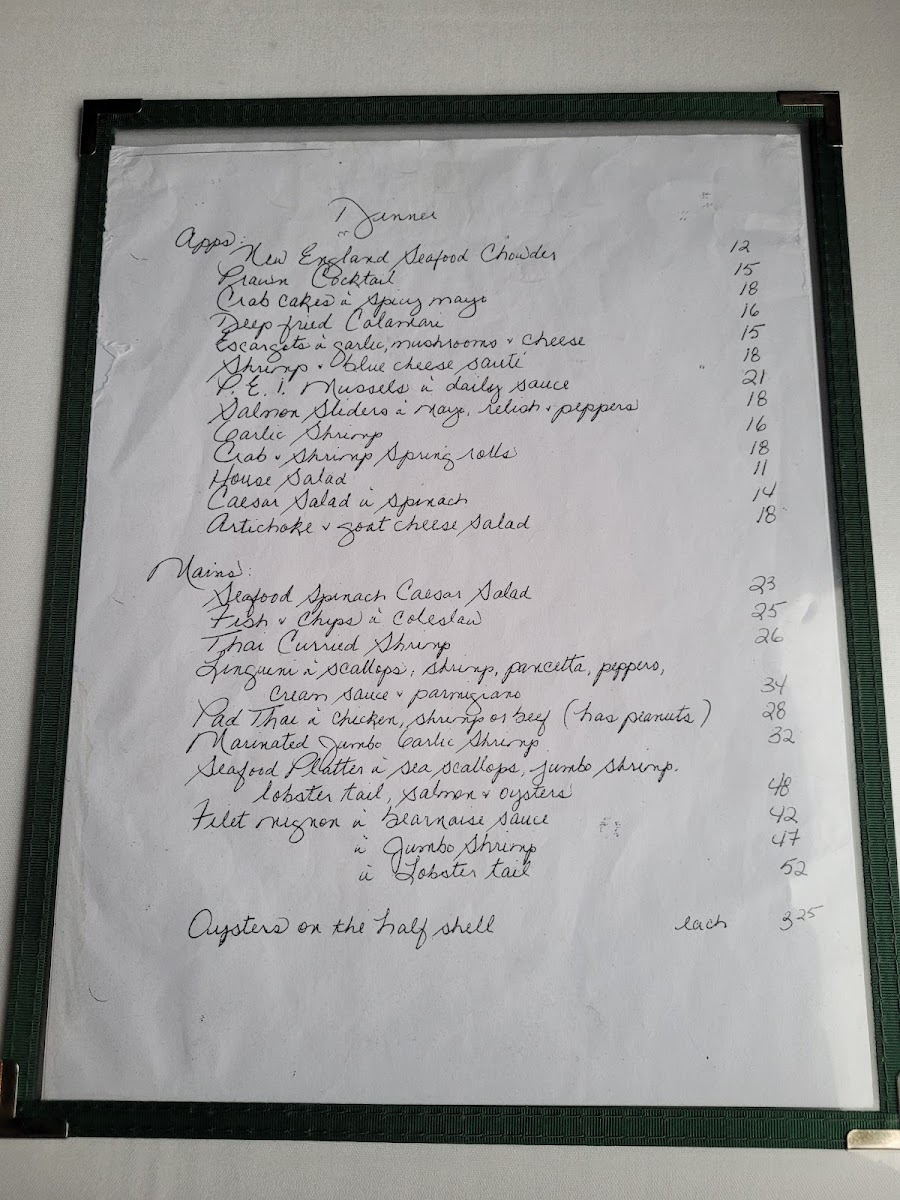 Dinner
Apps:
New England Seafood Chowder 12
Prawn Cocktail 15
Crab cakes à spicy mayo 18
Deep fried Calamari 16
Escargots à garlic, mushrooms + cheese 15
Shrimp + blue cheese sauté 18
P.E.I. Mussels à daily sauce 21
Salmon Sliders à mayo, relish + peppers 18
Garlic Shrimp 16
Crab + Shrimp Spring rolls 18
House Salad 11
Caesar Salad à spinach 14
Artichoke + goat cheese salad 18
Mains:
Seafood Spinach Caesar Salad 23
Fish + Chips à coleslaw 25
Thai Curried Shrimp 26
Linguini à scallops, shrimp, pancetta, peppers,
cream sauce + parmigiano 34
Pad Thai à chicken, shrimp or beef (has peanuts) 28
Marinated Jumbo Garlic Shrimp 32
Seafood Platter à sea scallops, jumbo shrimp.
lobster tail, salmon + oysters 48
Filet mignon à bearnaise sauce 42
à Jumbo Shrimp 47
à Lobster tail 52
Oysters on the half shell each 3 25